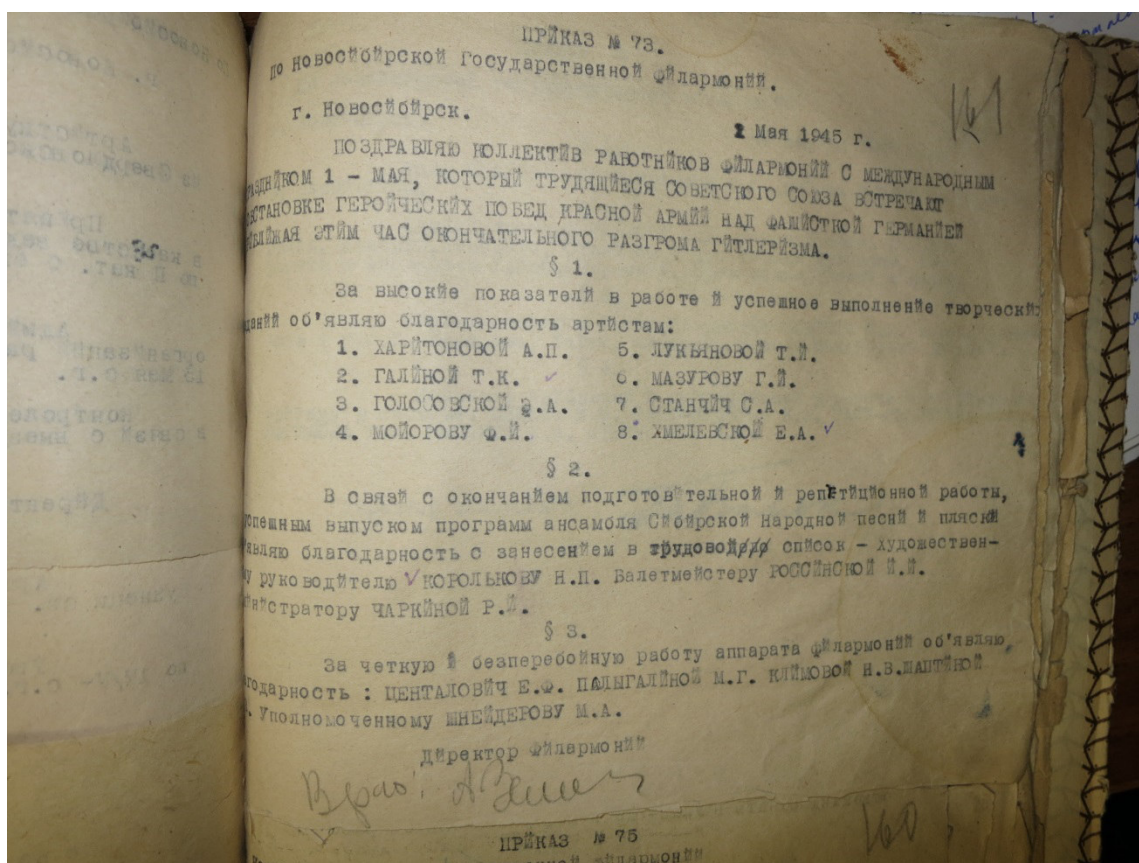 ПРЙКАЗ № 73.
по Новосйбйрской Государственной Фйлармонйй.
г. Новосйбйрск.
161
2 Мая 1945 г.
ПОЗДРАВЛЯЮ КОЛЛЕКТЙВ РАБОТНЙКОВ ФЙЛАРМОНЙЙ С МЕЖДУНАРОДНЫМ
РАЗДНЙКОМ 1 - МАЯ, КОТОРЫЙ ТРУДЯЩЙЕСЯ СОВЕТСКОГО СОЮЗА ВСТРЕЧАЮТ
БСТАНОВКЕ ГЕРОЙЧЕСКЙХ ПОБЕД КРАСНОЙ АРМЙЙ НАД ФАШЙСТКОЙ ГЕРМАНЙЕЙ
ЙБЛЙЖАЯ ЭТЙМ ЧАС ОКОНЧАТЕЛЬНОГО РАЗГРОМА ГЙТЛЕРЙЗМА.
§ 1.
За высокйе показателй в работе й успешное выполненйе творческй
данйй об'являю благодарность артйстам:
1. ХАРЙТОНОВОЙ А.П. 5. ЛУКЬЯНОВОЙ Т.Й.
2. ГАЛЙНОЙ Т.К. 6. МАЗУРОВУ Г.Й.
3. ГОЛОСОВСКОЙ Э.А. 7. СТАНЧЙЧ С.А.
4. МОЙОРОВУ Ф.Й. 8. ХМЕЛЕВСКОЙ Е.А.
§ 2.
В связй с окончанйем подготовйтельной й репетйцйонной работы,
успешным выпуском программ ансамбля Сйбйрской Народной песнй й пляскй
'являю благодарность с занесенйем в трудовой спйсок - Художествен-
му руководйтелю КОРОЛЬКОВУ Н.П. Балетмейстеру РОССЙНСКОЙ Й.Й.
мйнйстратору ЧАРКЙНОЙ Р.Й.
§ 3.
За четкую й безперебойную работу аппарата фйлармонйй об'являю
агодарность : ЦЕНТАЛОВЙЧ Е.Ф. ПАЛЫГАЛЙНОЙ М.Г. КЛЙМОВОЙ Н.В.ЛАПТЙНОЙ
. Уполномоченному ШНЕЙДЕРОВУ М.А.
Дйректор Фйлармонйй
ПРЙКАЗ № 75
160